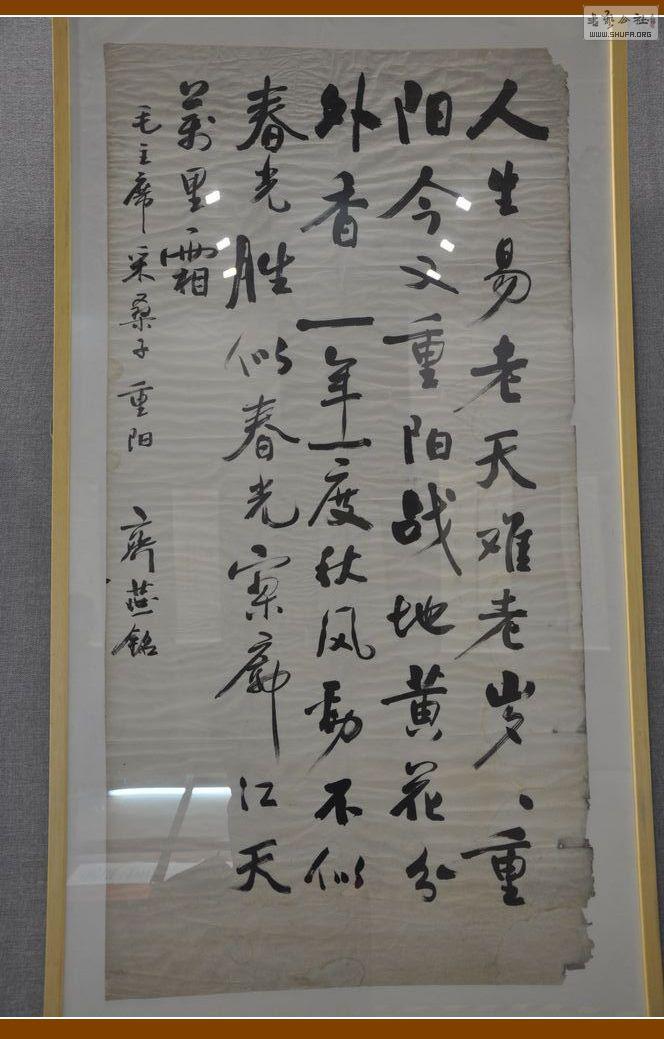 人生易老天难老岁、重
阳今又重阳战地黄花分
外香一年一度秋风劲不似
春光胜似春光寥廓江天
萬里霜
毛主席采桑子 重阳 齊燕銘
書藝公社
WWW.SHUFA.ORG